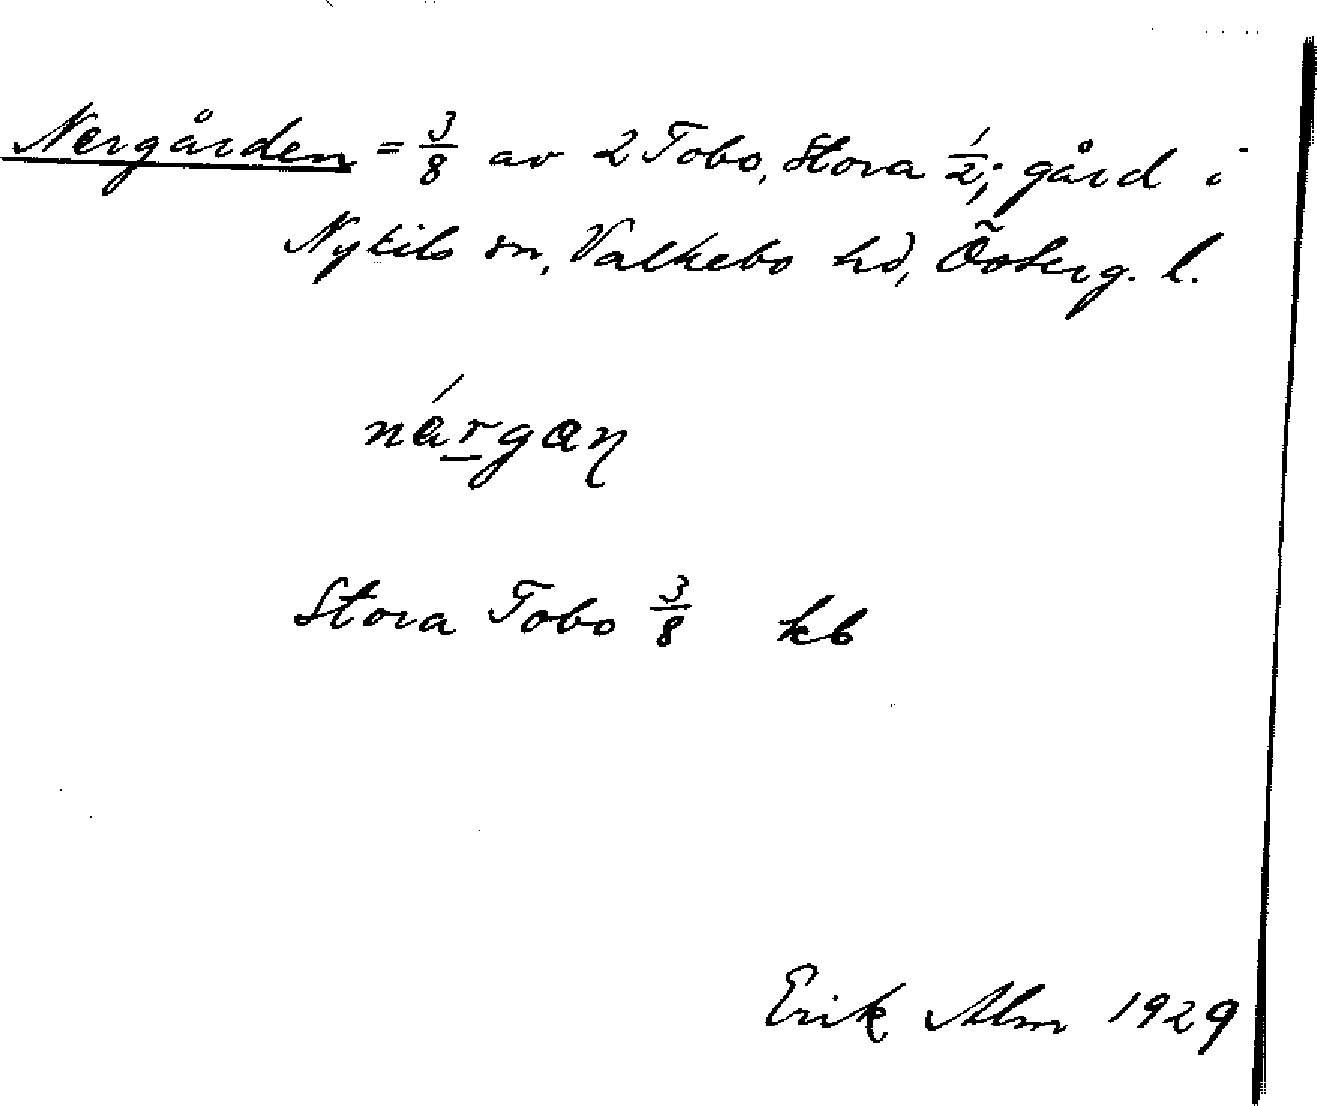 Nergården = 3/8 av 2 Tobo, Stora 1/2; gård i
Nykils sn, Valkebo hd, Österg. l.
Stora Tobo 3/8 kb
Erik Alm 1929